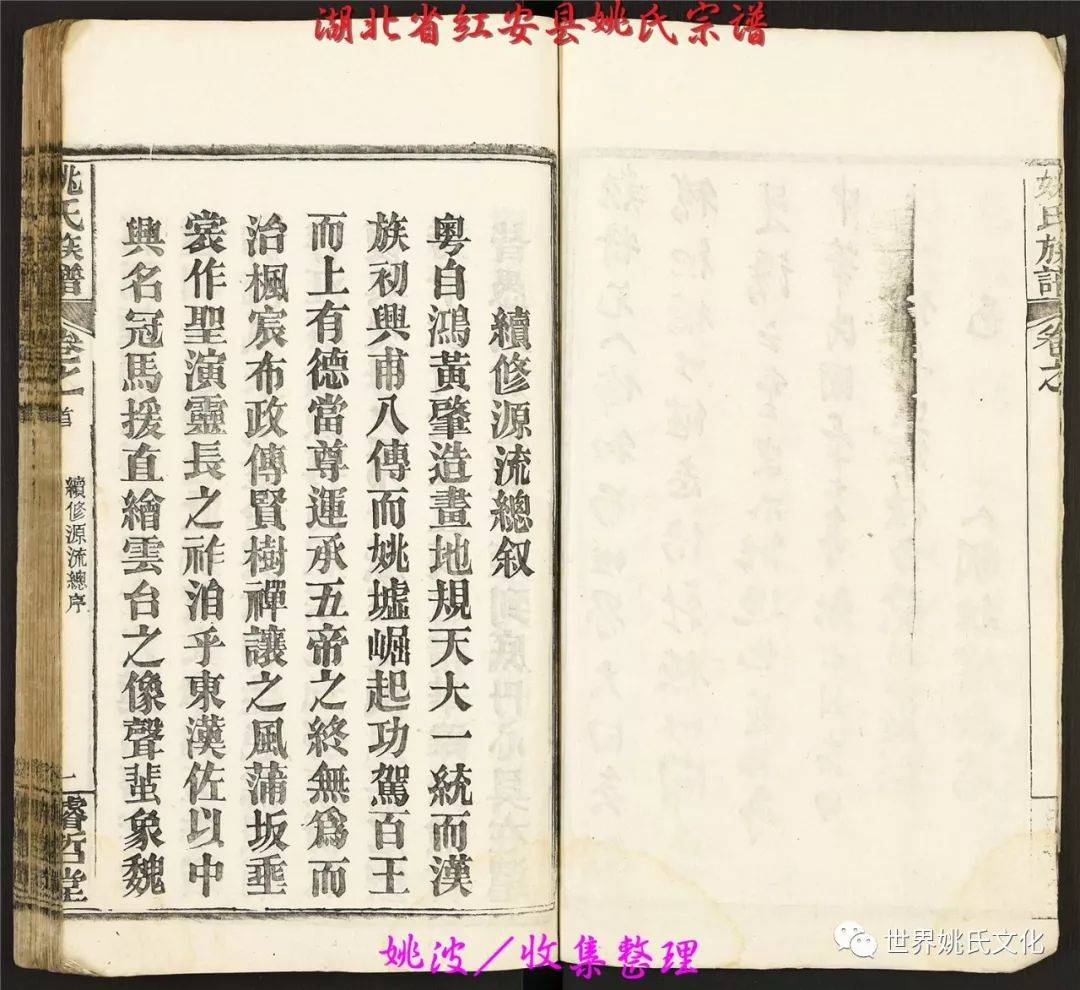 湖北省红安县姚氏宗谱
續修源流總叙
粤自鴻黃肇造畫地規天大一統而漢
族初興甫八傳而姚墟崛起功駕百王
而上有德當尊運承五帝之終無爲而
治楓宸布政傳賢樹禪讓之風蒲坂垂
裳作聖演靈長之祚洎乎東漢佐以中
興名冠馬援直繪雲台之像聲蜚象魏
姚氏族譜
卷之一
首
續修源流總序
一
睿哲堂
姚氏族譜
卷之
姚波／收集整理
世界姚氏文化